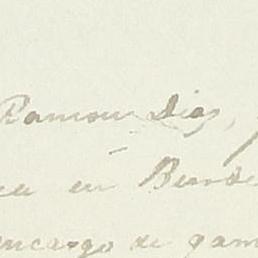 Ramon Diaz,
en Burde
encargo de gam